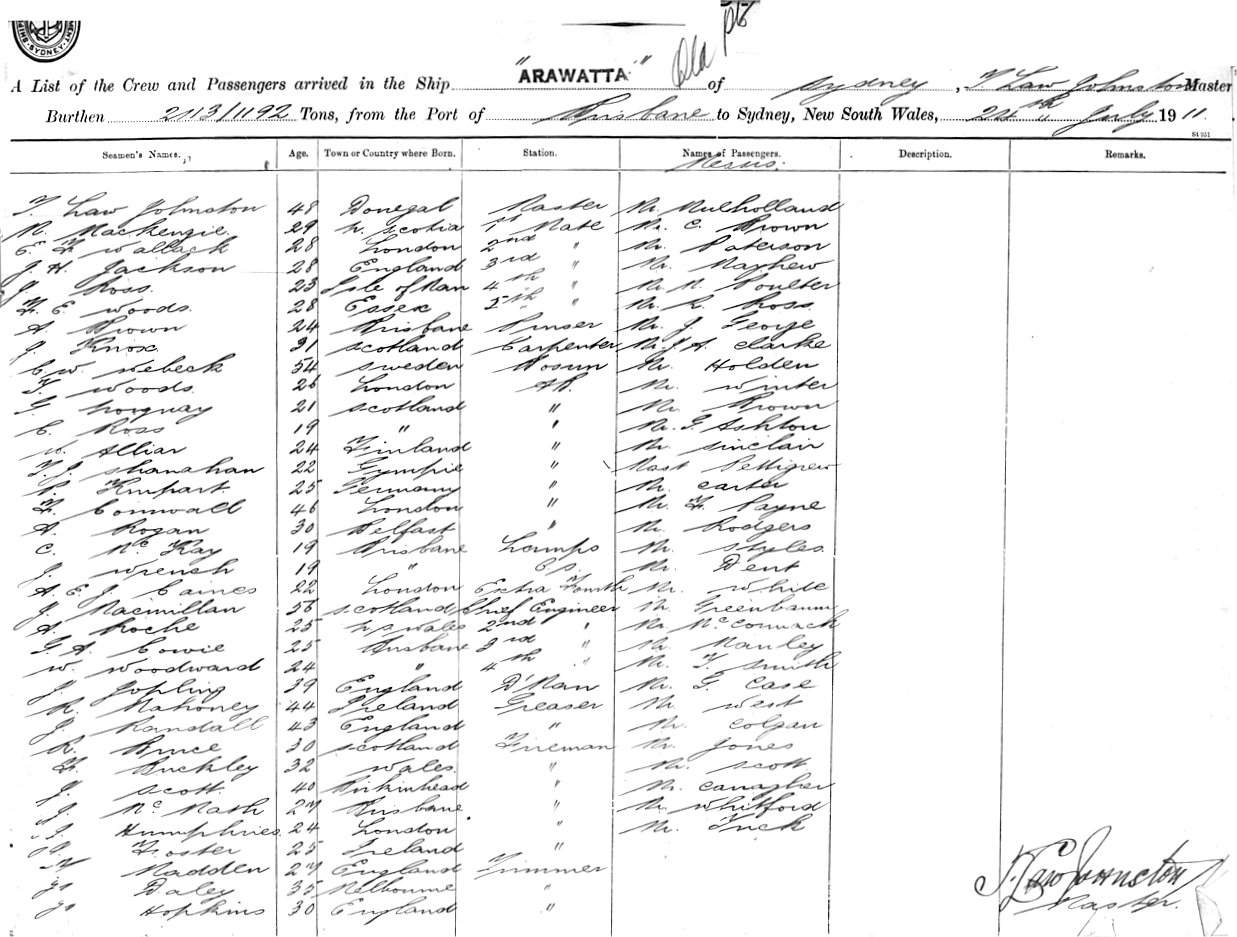 SYDNEY
"ARAWATTA" Old pt
A List of the Crew and Passengers arrived in the Ship "ARAWATTA" of Sydney, T. Law Johnston Master
Burthen 2113/1192 Tons, from the Port of Brisbane to Sydney, New South Wales, 24th July 1911.
St 951
Seamen's Names. Age. Town or Country where Born. Station. Names of Passengers. Description. Remarks.
Messrs.
T. Law Johnston 48 Donegal Master Mr. Mulholland
M. Mackenzie 29 N. Scotia 1st Mate Mr. C. Brown
E. F. Wallack 28 London 2nd " Mr. Paterson
J. H. Jackson 28 England 3rd " Mr. Mayhew
J. Ross. 23 Isle of Man 4th " Mr. N. Poulter
F. E. Woods. 28 Essex 5th " Mr. R. Ross
A. Brown 24 Brisbane Purser Mr. J. George
J. Knox 31 Scotland Carpenter Mr. J. A. Clarke
C. W. Webeck 54 Sweden Bosun Mr. Holden
T. Woods. 26 London AB. Mr. Winter
G. Norquay 21 Scotland " Mr. Brown
C. Ross 19 " " Mr. G. Ashton
W. Alliar 24 Finland " Mr. Sinclair
T. J. Shanahan 22 Gympie " Mast Pettigrew
25 Germany " Mr. Carter
F. Cornwall 46 London " Mr. F. Payne
A. Rogan 30 Belfast " Mr. Rodgers
C. McKay 19 Brisbane Lamps Mr. Styles
J. Wrench 19 " Mr. Dent
A. E. J. Caines 22 London Extra Fourth Mr. White
J. Macmillan 56 Scotland Chief Engineer Mr. Greenbaum
A. Roche 25 N. S. Wales 2nd " Mr. McCormack
G. A. Cowie 25 Brisbane 3rd " Mr. Manley
W. Woodward 24 " 4th " Mr. T. Smith
J. Jopling 39 England D'Man Mr. G. Case
R. Mahoney 44 Ireland Greaser Mr. West
J. Randall 43 England " Mr. Colgan
R. Bruce 30 Scotland Fireman Mr. Jones
F. Buckley 32 Wales. " Mr. Scott
J. Scott. 40 Birkinhead " Mr. Canagher
J. McMath 27 Brisbane " Mr. Whitford
J. Humphries. 24 London " Mr. Tuck
Foster 25 Ireland "
Madden 27 England Trimmer
J. Daley 35 Melbourne "
J. Hopkins 30 England "
T. Law Johnston
Master.